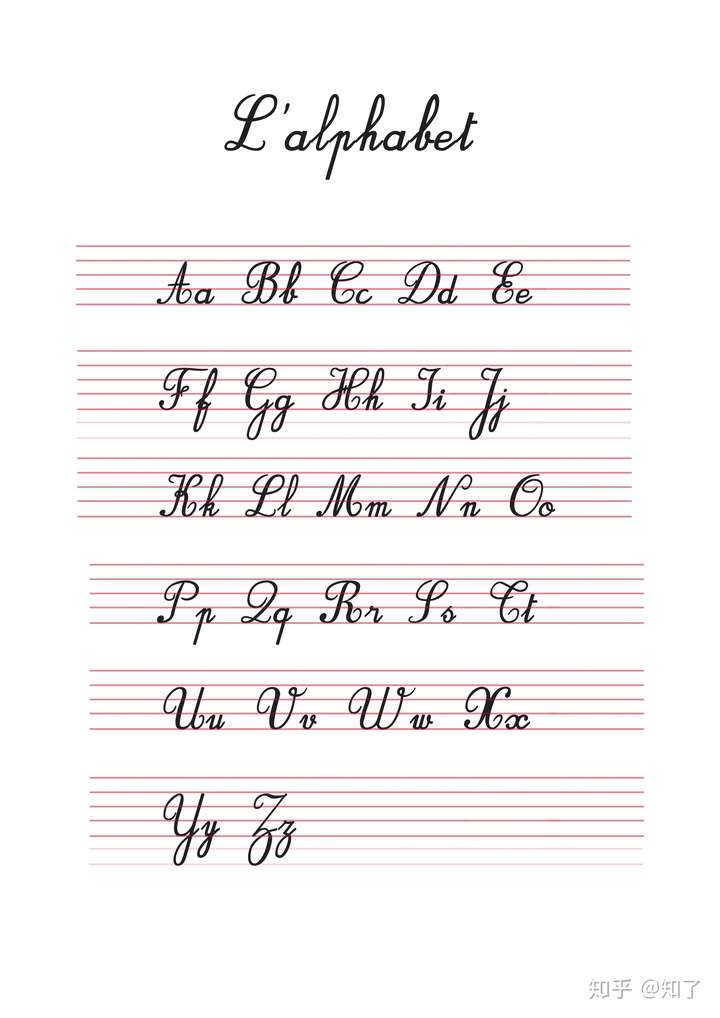 L'alphabet
Aa Bb Cc Dd Ee
Ff Gg Hh Ii Jj
Kk Ll Mm Nn Oo
Pp Qq Rr Ss Tt
Uu Vv Ww Xx
Yy Zz
知乎 @知了